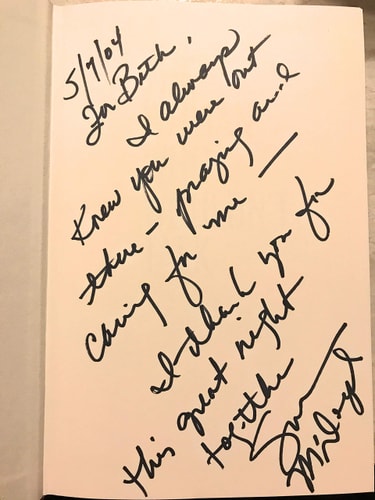 5/7/04
For Beth,
I always
knew you were out
there - praying and
caring for me —
I thank you for
this great night
together